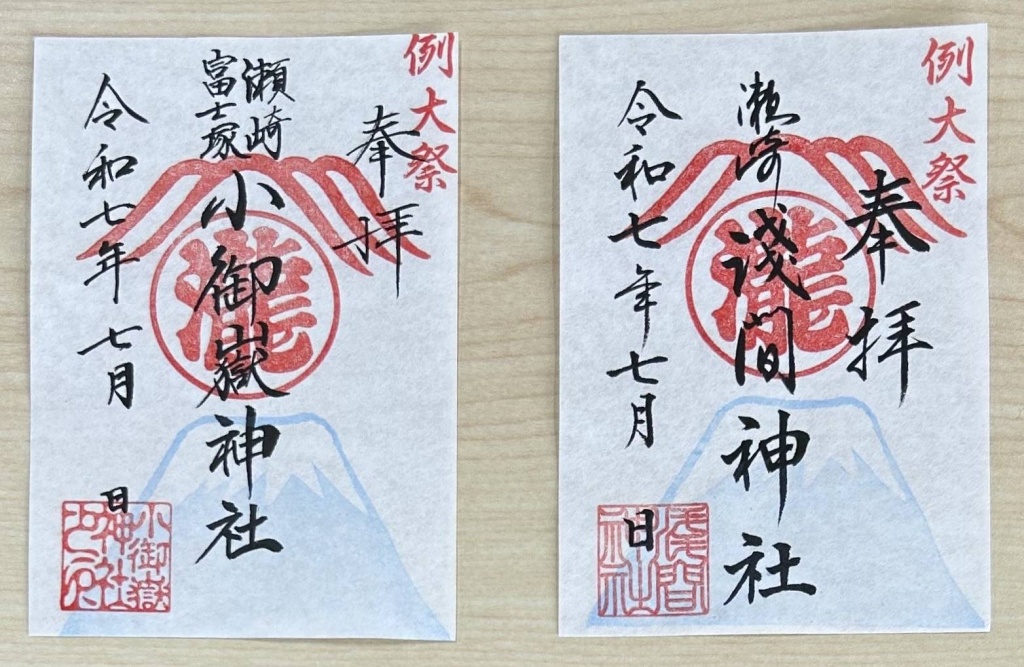 例大祭
奉拝
瀬崎
富士塚
小御嶽神社
令和七年七月 日
瀧
小御嶽
神社
例大祭
奉拝
瀬崎
淺間神社
令和七年七月 日
瀧
浅間
神社